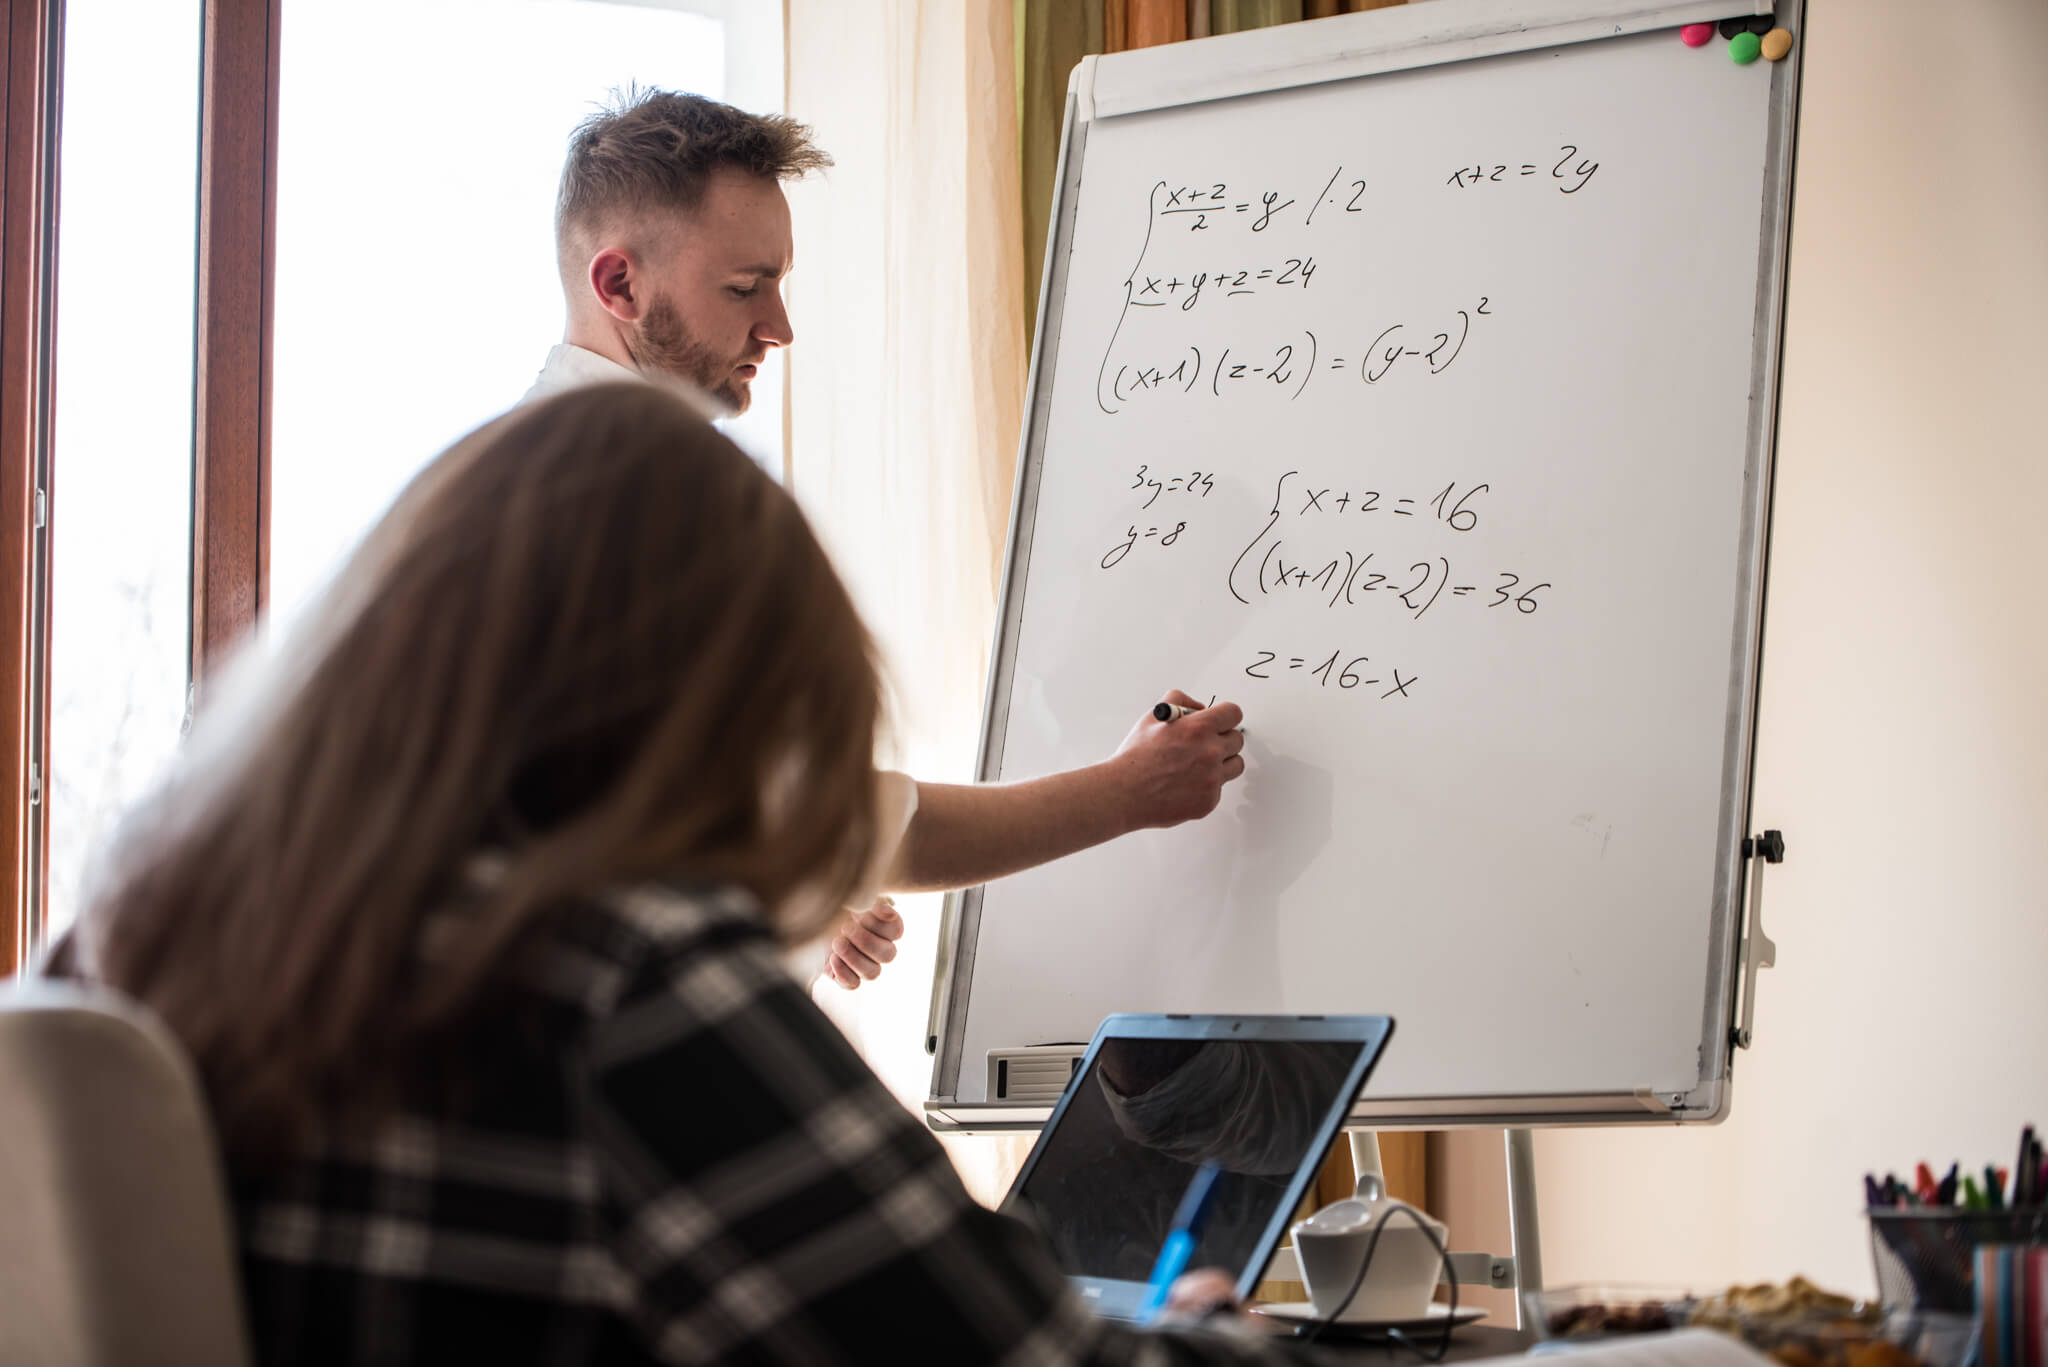 { x+z/2 = y /·2
x+z = 2y
x+y+z=24
(x+1)(z-2) = (y-2)²
3y=24
y=8
{ x+z=16
(x+1)(z-2)=36
z=16-x